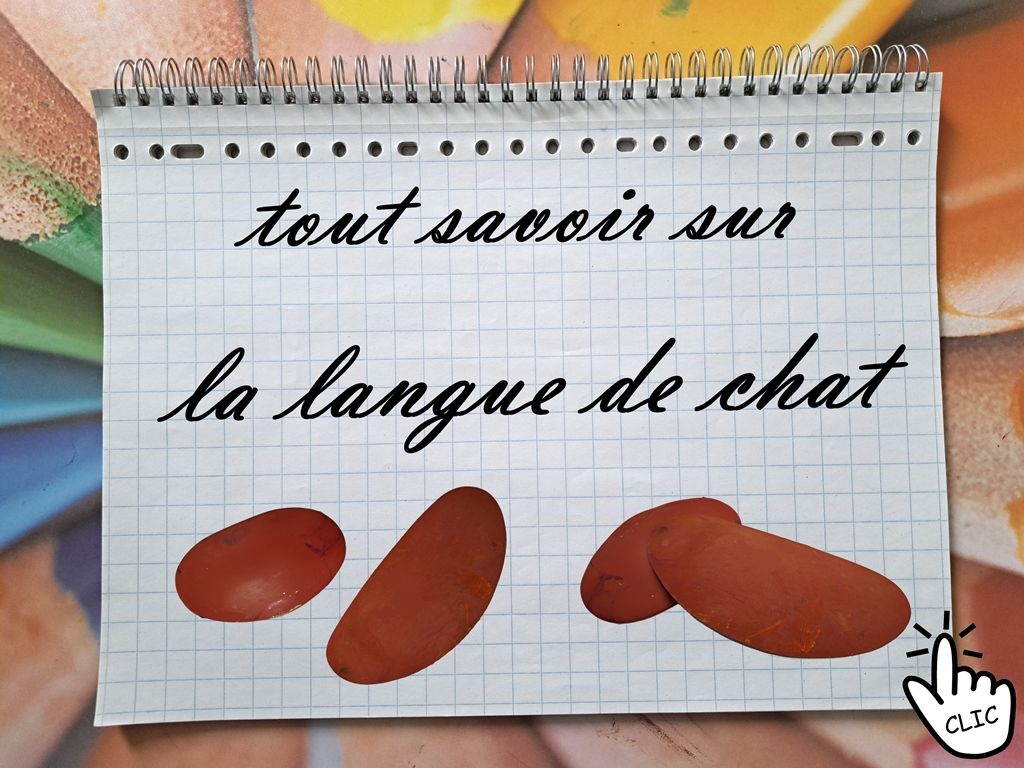 tout savoir sur
la langue de chat
CLIC